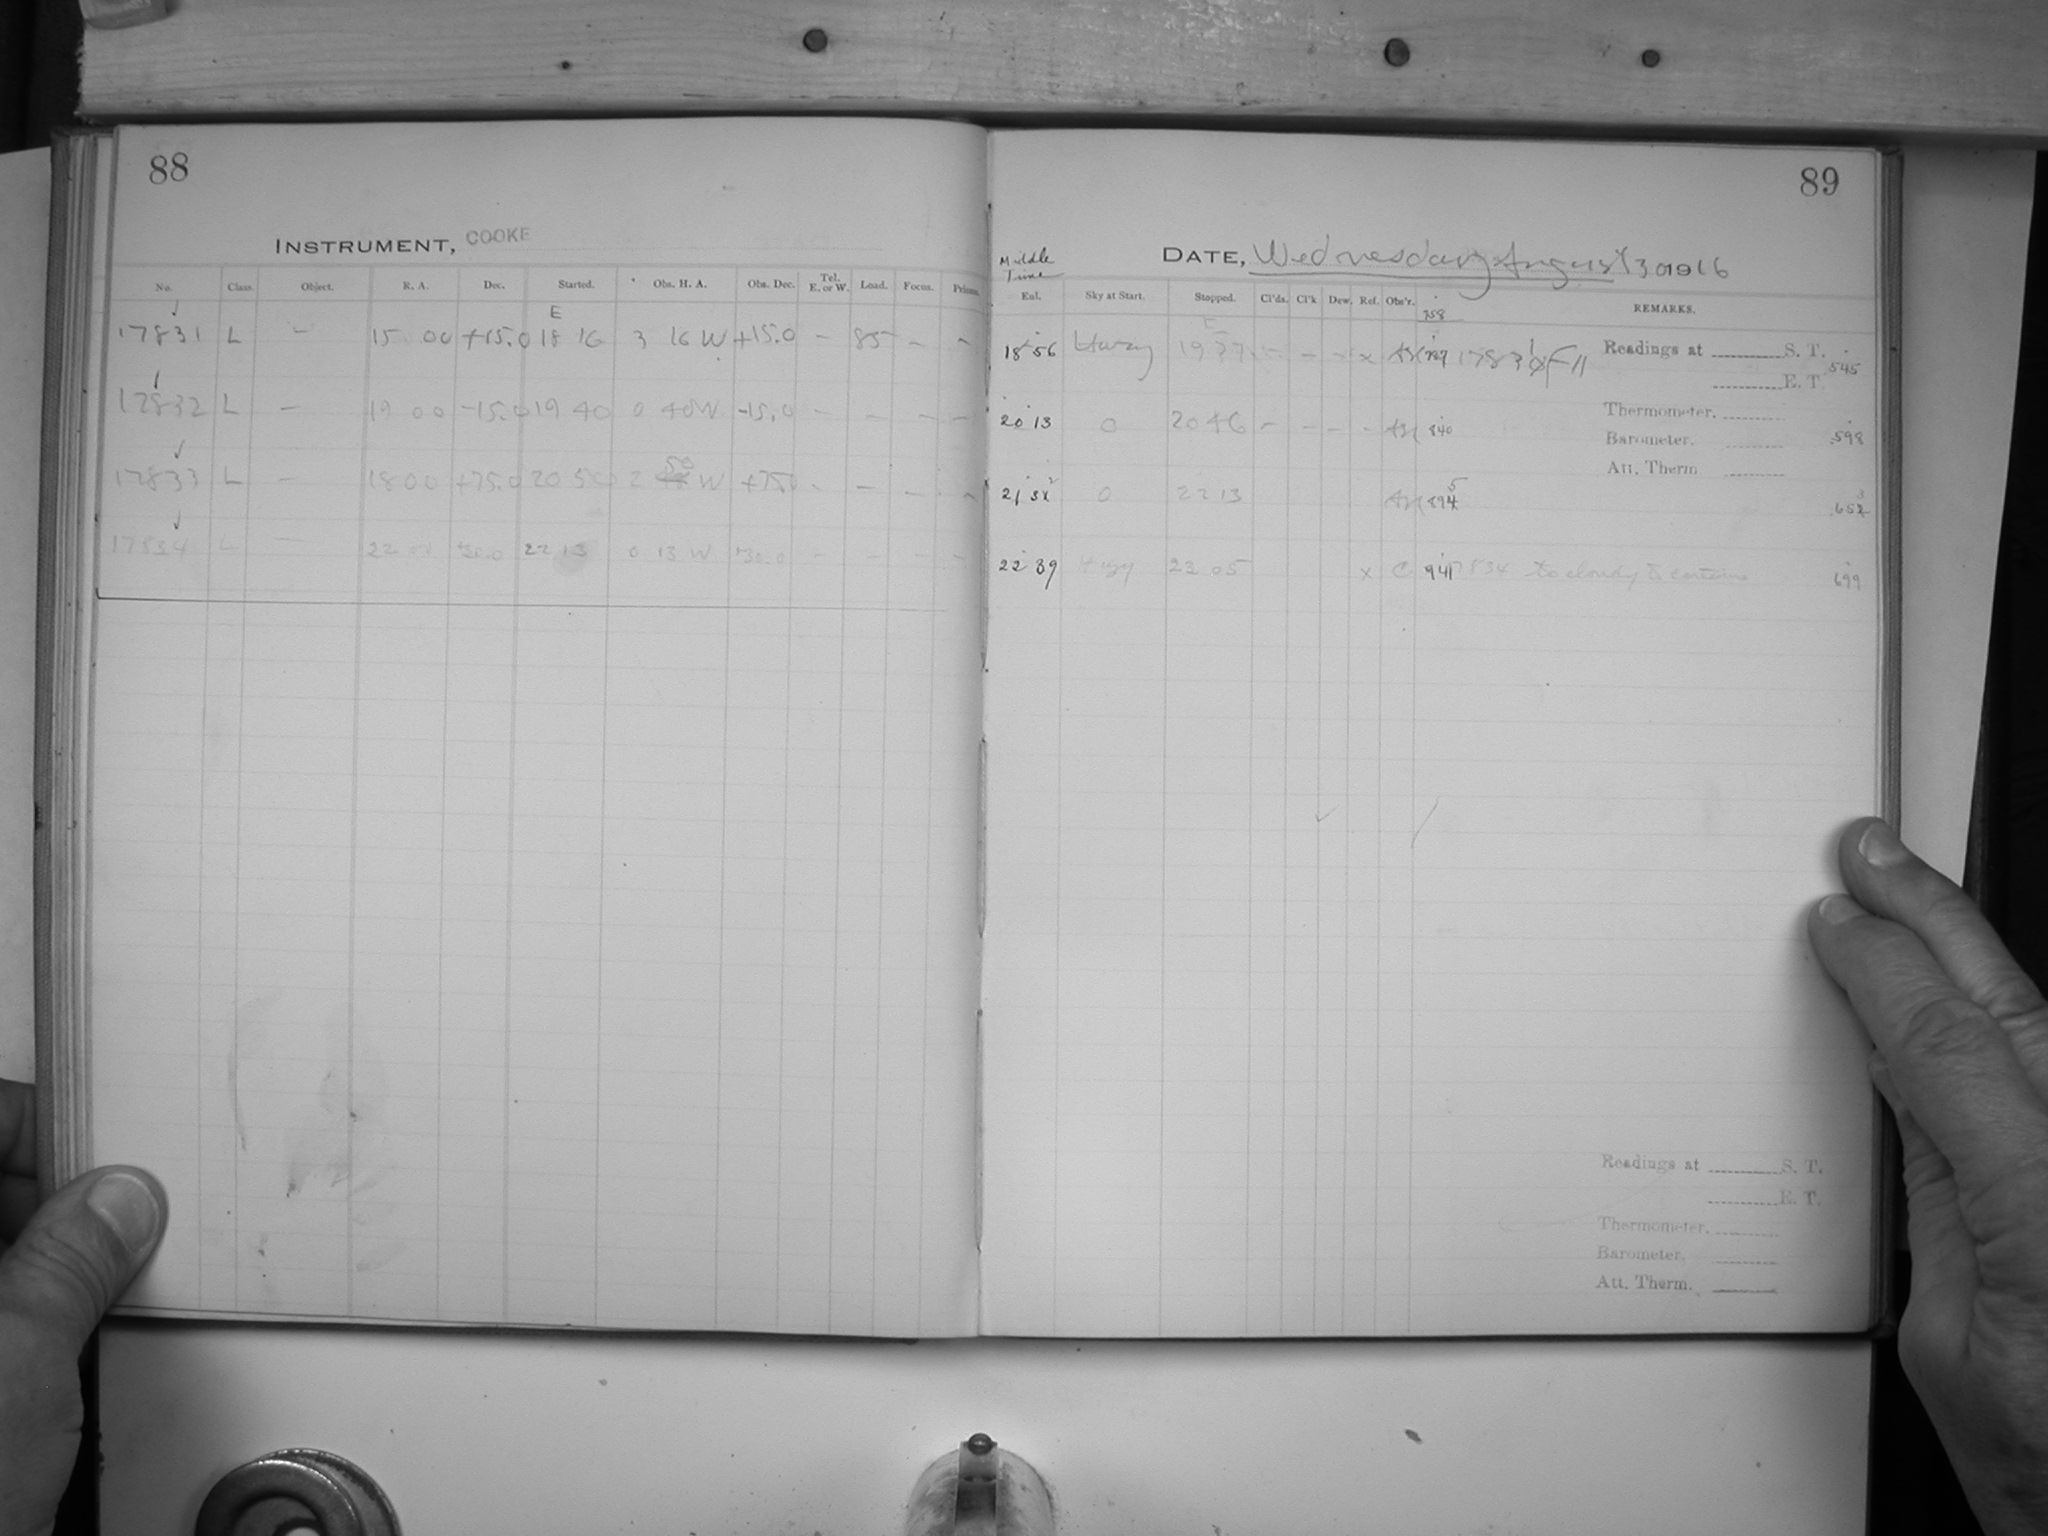 88
INSTRUMENT, COOKE
No. Class. Object. R. A. Dec. Started. Obs. H. A. Obs. Dec. Tel. E. or W. Load. Focus. Prisms.
E
17831 L - 15 00 +15.0 18 16 3 16 W +15.0 - 85 - -
17832 L - 19 00 -15.0 19 40 0 40 W -15.0 - - - -
17833 L - 18 00 +75.0 20 50 2 50 W +75.0 - - - -
17834 L - 22 00 +30.0 22 13 0 13 W +30.0 - - - -
89
DATE, Wednesday August 30 1916
Middle Time
Eul. Sky at Start. Stopped. Cl'ds. Cl'k Dew. Ref. Obs'r. REMARKS.
758
18 56 Hazy 19 37 - x x 17831 F 11 .545
20 13 0 20 46 - - - - 840 .598
21 32 0 22 13 895 .653
22 39 Hazy 23 05 x C 941 17834 to cloudy to continue .699
Readings at S. T.
E. T.
Thermometer.
Barometer.
Att. Therm
Readings at S. T.
E. T.
Thermometer.
Barometer.
Att. Therm.